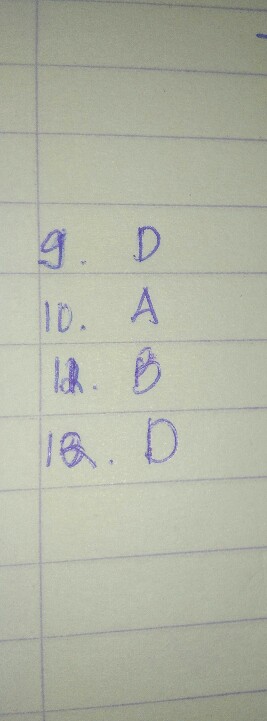 9. D
10. A
11. B
12. D